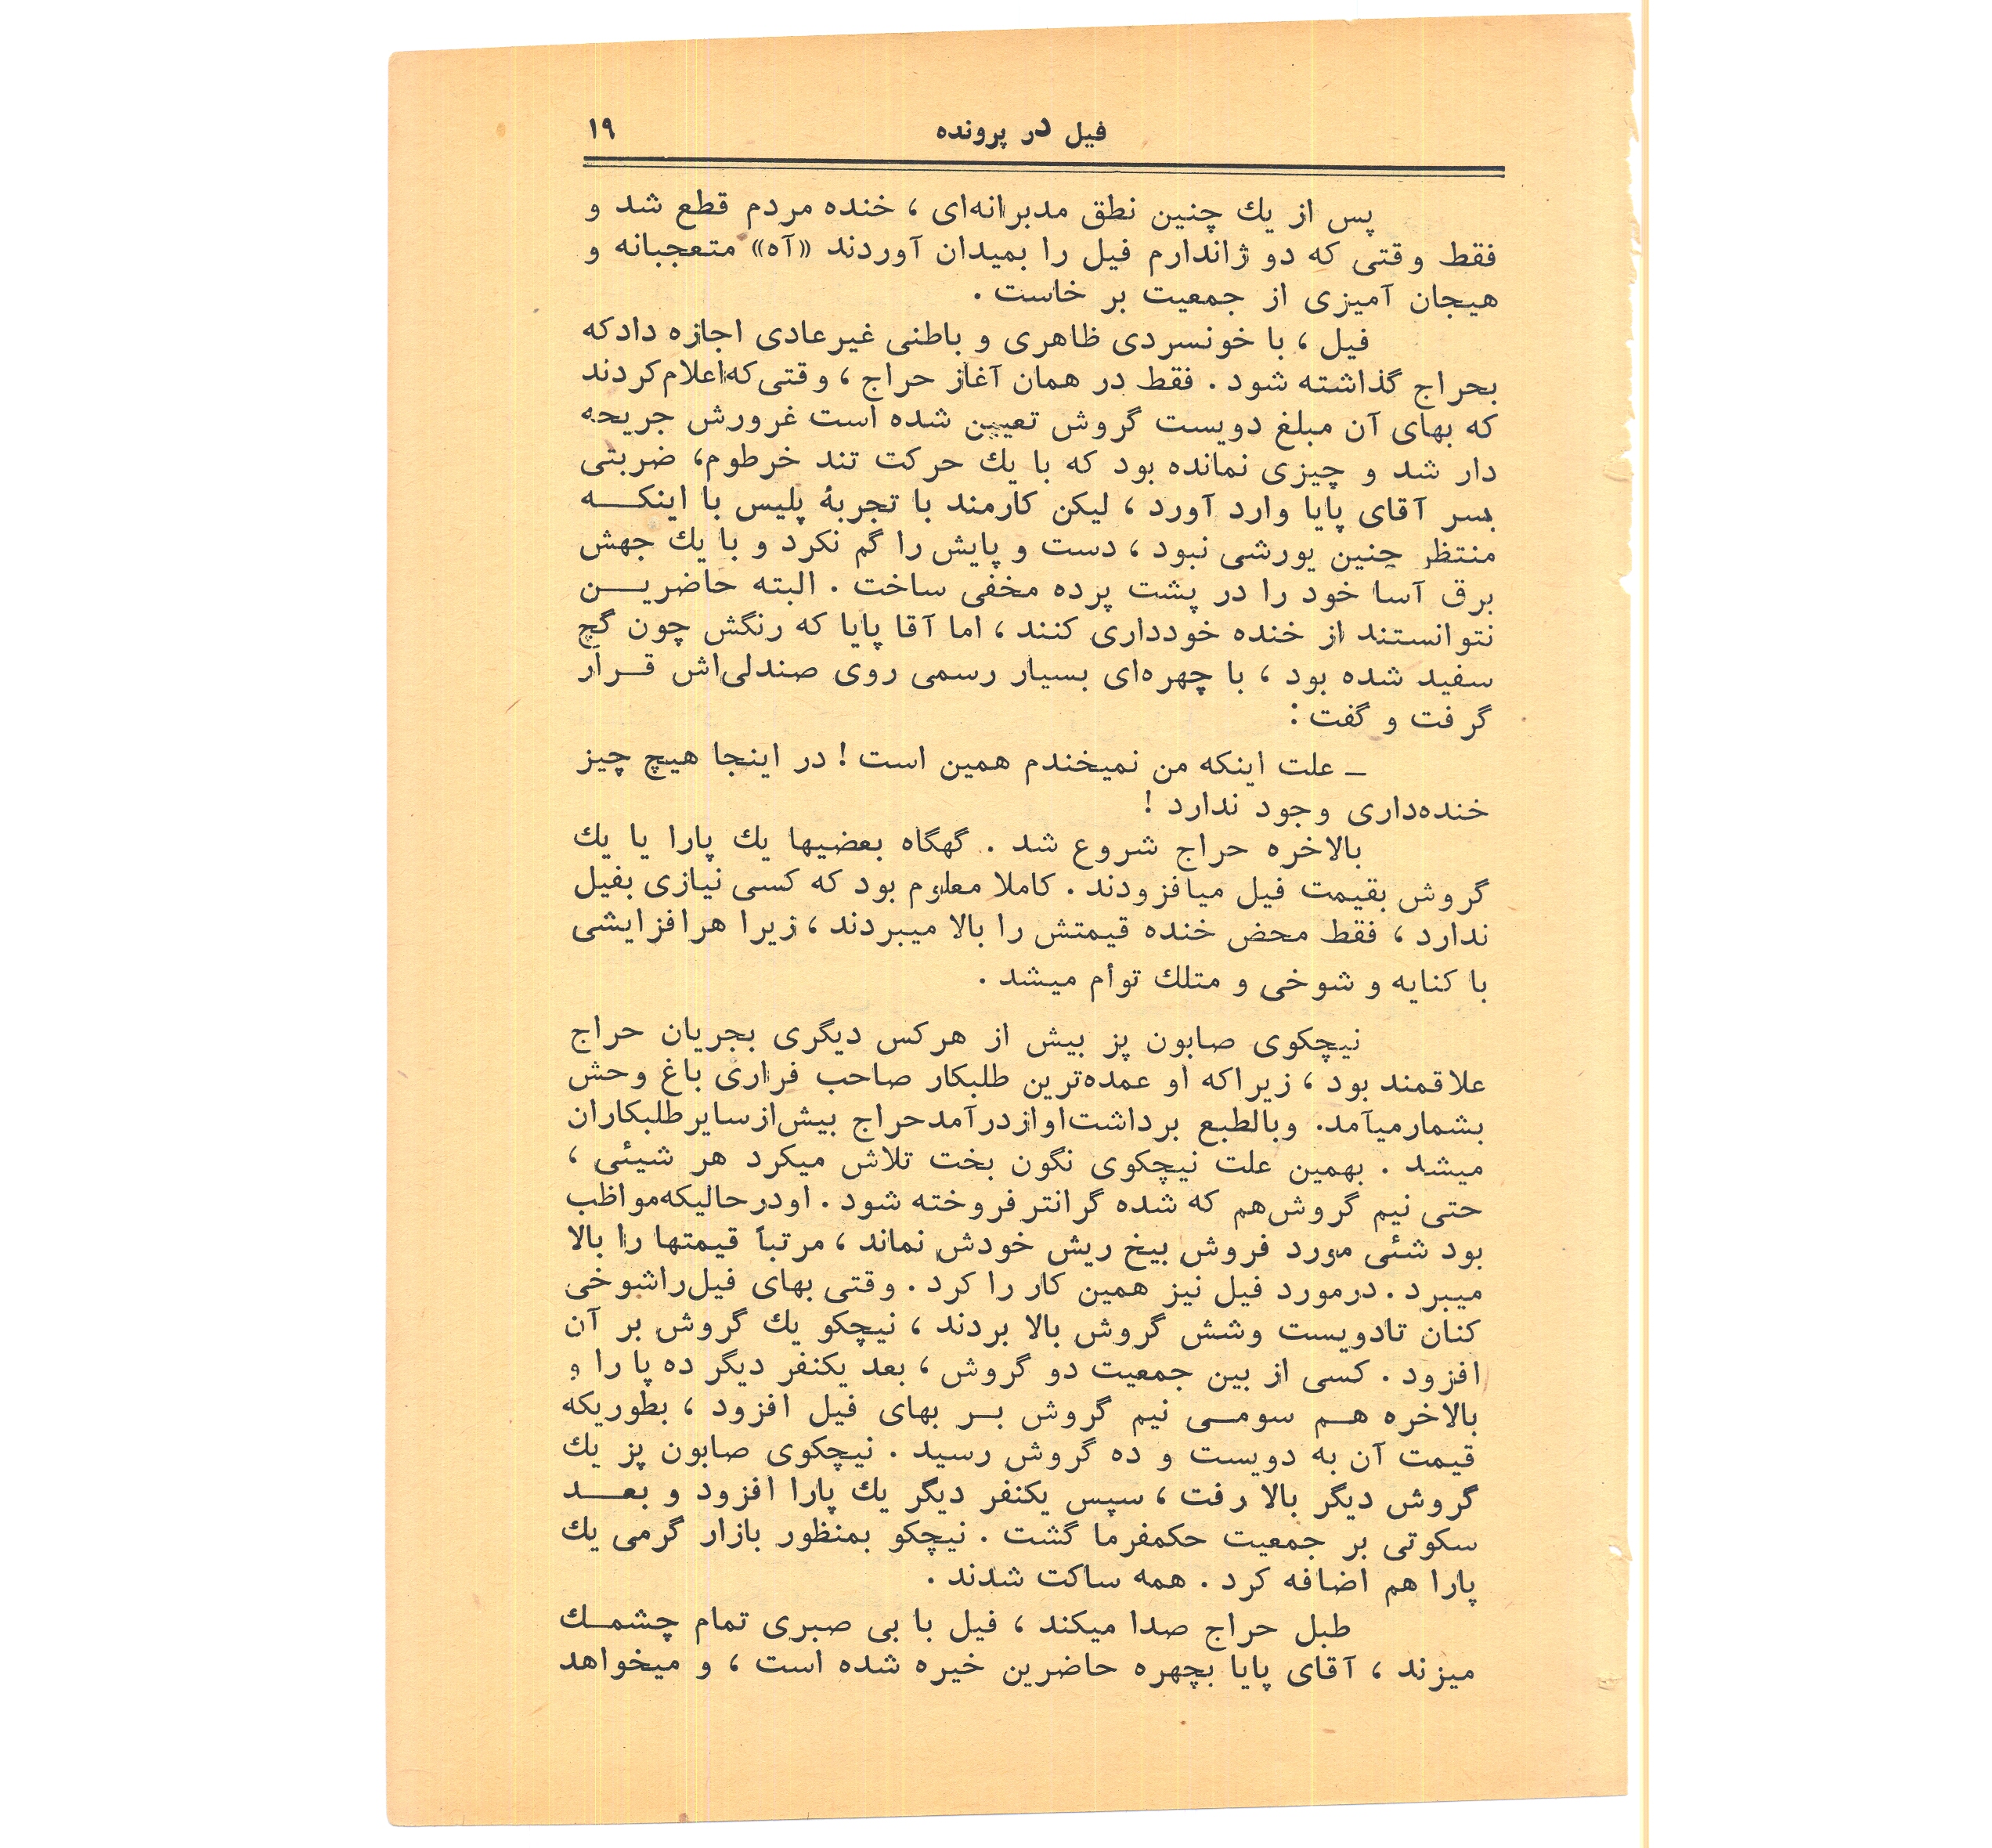 فیل در پرونده
۱۹
پس از یك چنین نطق مدبرانه‌ای ، خنده مردم قطع شد و
فقط وقتی که دو ژاندارم فیل را بمیدان آوردند «آه» متعجبانه و
هیجان آمیزی از جمعیت بر خاست .
فیل ، با خونسردی ظاهری و باطنی غیرعادی اجازه دادکه
بحراج گذاشته شود . فقط در همان آغاز حراج ، وقتی‌که‌اعلام‌کردند
که بهای آن مبلغ دویست گروش تعیین شده است غرورش جریحه
دار شد و چیزی نمانده بود که با یك حرکت تند خرطوم، ضربتی
بسر آقای پایا وارد آورد ، لیکن کارمند با تجربهٔ پلیس با اینکـــه
منتظر چنین یورشی نبود ، دست و پایش را گم نکرد و با یك جهش
برق آسا خود را در پشت پرده مخفی ساخت . البته حاضریـــن
نتوانستند از خنده خودداری کنند ، اما آقا پایا که رنگش چون گچ
سفید شده بود ، با چهره‌ای بسیار رسمی روی صندلی‌اش قـــرار
گرفت و گفت :
ــ علت اینکه من نمیخندم همین است ! در اینجا هیچ چیز
خنده‌داری وجود ندارد !
بالاخره حراج شروع شد . گهگاه بعضیها یك پارا یا یك
گروش بقیمت فیل میافزودند . کاملا معلوم بود که کسی نیازی بفیل
ندارد ، فقط محض خنده قیمتش را بالا میبردند ، زیرا هرافزایشی
با کنایه و شوخی و متلك توأم میشد .
نیچکوی صابون پز بیش از هرکس دیگری بجریان حراج
علاقمند بود ، زیراکه او عمده‌ترین طلبکار صاحب فراری باغ وحش
بشمارمیآمد. وبالطبع برداشت‌اوازدرآمدحراج بیش‌ازسایرطلبکاران
میشد . بهمین علت نیچکوی نگون بخت تلاش میکرد هر شیئی ،
حتی نیم گروش‌هم که شده گرانترفروخته شود . اودرحالیکه‌مواظب
بود شئی مورد فروش بیخ ریش خودش نماند ، مرتباً قیمتها را بالا
میبرد . درمورد فیل نیز همین کار را کرد . وقتی بهای فیل‌راشوخی
کنان تادویست وشش گروش بالا بردند ، نیچکو یك گروش بر آن
افزود . کسی از بین جمعیت دو گروش ، بعد یکنفر دیگر ده پارا و
بالاخره هــم سومــی نیم گروش بــر بهای فیل افزود ، بطوریکه
قیمت آن به دویست و ده گروش رسید . نیچکوی صابون پز یك
گروش دیگر بالا رفت ، سپس یکنفر دیگر یك پارا افزود و بعـــد
سکوتی بر جمعیت حکمفرما گشت . نیچکو بمنظور بازار گرمی یك
پارا هم اضافه کرد . همه ساکت شدند .
طبل حراج صدا میکند ، فیل با بی صبری تمام چشمـــك
میزند ، آقای پایا بچهره حاضرین خیره شده است ، و میخواهد